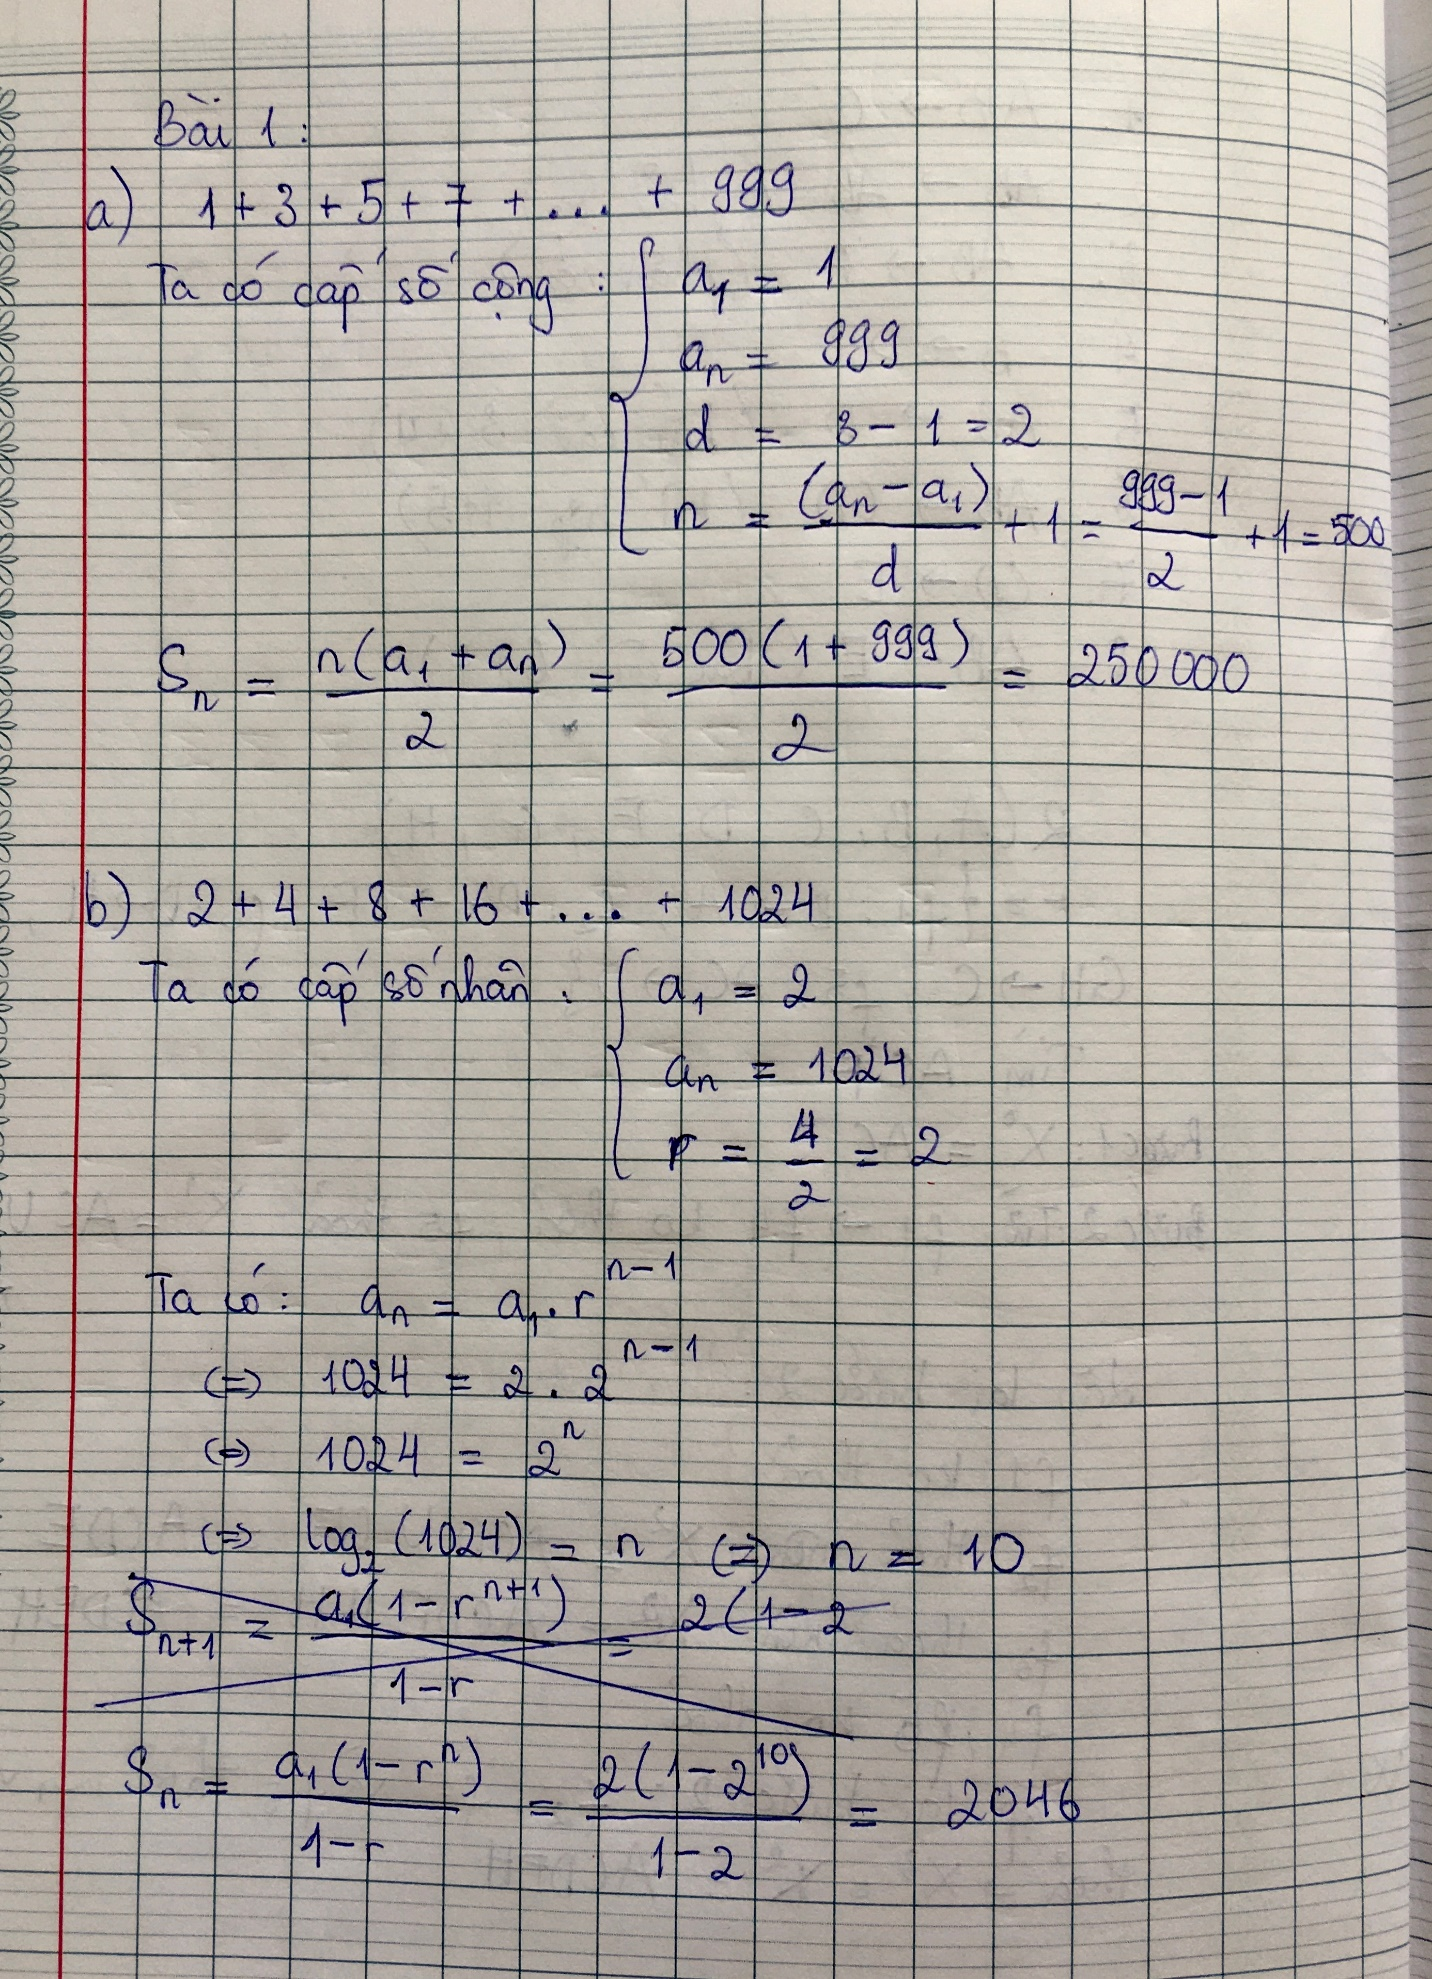 Bài 1:
a) 1 + 3 + 5 + 7 + ... + 999
Ta có cấp số cộng : { a₁ = 1
aₙ = 999
d = 3 - 1 = 2
n = (aₙ - a₁)/d + 1 = (999 - 1)/2 + 1 = 500
Sₙ = n(a₁ + aₙ)/2 = 500(1 + 999)/2 = 250000
b) 2 + 4 + 8 + 16 + ... + 1024
Ta có cấp số nhân : { a₁ = 2
aₙ = 1024
r = 4/2 = 2
Ta có: aₙ = a₁ . r^(n-1)
(=) 1024 = 2 . 2^(n-1)
(=) 1024 = 2^n
(=) log₂(1024) = n (=) n = 10
Sₙ₊₁ = a₁(1 - r^(n+1))/(1 - r) = 2(1 - 2
Sₙ = a₁(1 - r^n)/(1 - r) = 2(1 - 2^10)/(1 - 2) = 2046